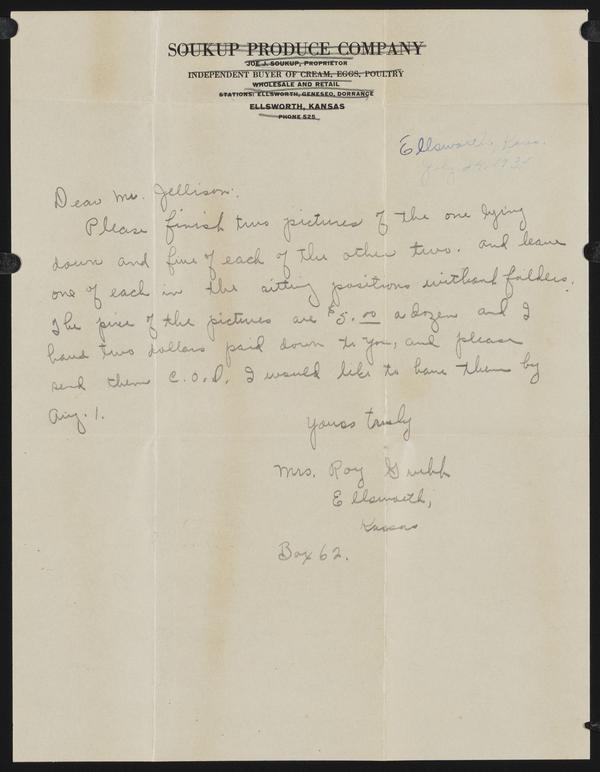 SOUKUP PRODUCE COMPANY
JOE J. SOUKUP, PROPRIETOR
INDEPENDENT BUYER OF CREAM, EGGS, POULTRY
WHOLESALE AND RETAIL
STATIONS: ELLSWORTH, GENESEO, DORRANCE
ELLSWORTH, KANSAS
PHONE 525
Ellsworth, Kans.
July 24, 193
Dear Mr. Jellison:
Please finish two pictures of the one lying
down and five of each of the other two. and leave
one of each in the sitting positions without folders.
The price of the pictures are $5.00 a dozen and I
have two dollars paid down to you, and please
send them C.O.D. I would like to have them by
Aug. 1.
Yours truly
Mrs. Roy Grubb
Ellsworth,
Kansas
Box 62.